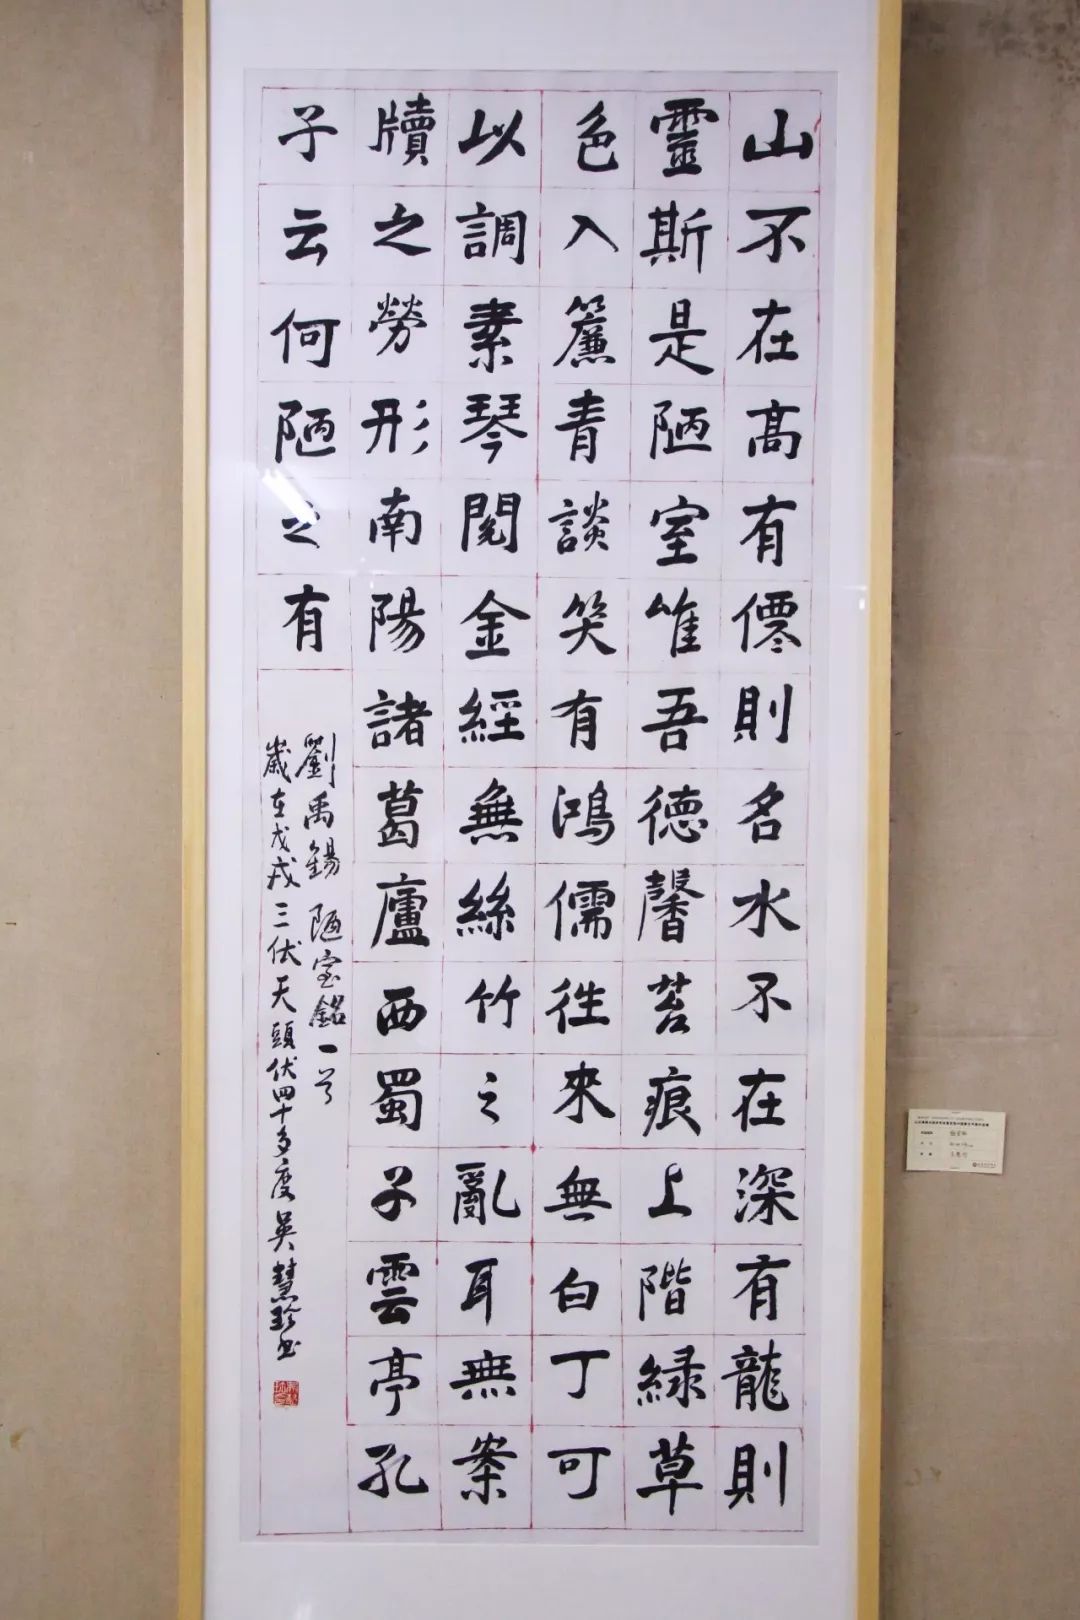 山不在高有僊則名水不在深有龍則
靈斯是陋室唯吾德馨苔痕上階緑草
色入簾青談笑有鴻儒往來無白丁可
以調素琴閱金經無絲竹之亂耳無案
牘之勞形南陽諸葛廬西蜀子雲亭孔
子云何陋之有
劉禹錫 陋室銘一首
歲在戊戌三伏天頭伏四十多度吳慧珍書